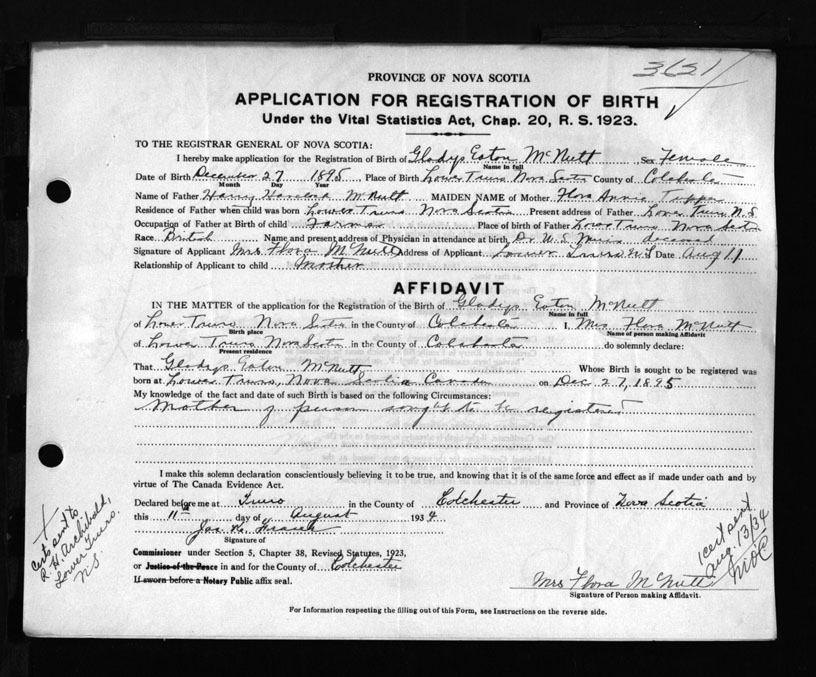 3621
PROVINCE OF NOVA SCOTIA
APPLICATION FOR REGISTRATION OF BIRTH
Under the Vital Statistics Act, Chap. 20, R. S. 1923.
TO THE REGISTRAR GENERAL OF NOVA SCOTIA:
I hereby make application for the Registration of Birth of Gladys Eaton McNutt Sex Female
Name in full
Date of Birth December 27 1895 Place of Birth Lower Truro Nova Scotia County of Colchester
Month Day Year
Name of Father Harry McNutt MAIDEN NAME of Mother Flora Annie Tupper
Residence of Father when child was born Lower Truro Nova Scotia Present address of Father Lower Truro N.S.
Occupation of Father at Birth of child Farmer Place of birth of Father Lower Truro Nova Scotia
Race British Name and present address of Physician in attendance at birth Dr. W. S. deceased
Signature of Applicant Mrs Flora McNutt Address of Applicant Lower Truro N.S. Date Aug 11
Relationship of Applicant to child Mother
AFFIDAVIT
IN THE MATTER of the application for the Registration of the Birth of Gladys Eaton McNutt
Name in full
of Lower Truro Nova Scotia in the County of Colchester I, Mrs Flora McNutt
Birth place Name of person making Affidavit
of Lower Truro Nova Scotia in the County of Colchester do solemnly declare:
Present residence
That Gladys Eaton McNutt Whose Birth is sought to be registered was
born at Lower Truro, Nova Scotia Canada on Dec 27, 1895
My knowledge of the fact and date of such Birth is based on the following Circumstances:
Mother of person sought to be registered
I make this solemn declaration conscientiously believing it to be true, and knowing that it is of the same force and effect as if made under oath and by
virtue of The Canada Evidence Act.
Declared before me at Truro in the County of Colchester and Province of Nova Scotia
this 11th day of August 1934
Jas.
Signature of
Commissioner under Section 5, Chapter 38, Revised Statutes, 1923,
or Justice of the Peace in and for the County of Colchester
If sworn before a Notary Public affix seal.
Mrs Flora McNutt
Signature of Person making Affidavit.
For Information respecting the filling out of this Form, see Instructions on the reverse side.
Cert sent to
R. H. Archibald,
Lower Truro.
N.S.
1 cert sent
Aug 13/34